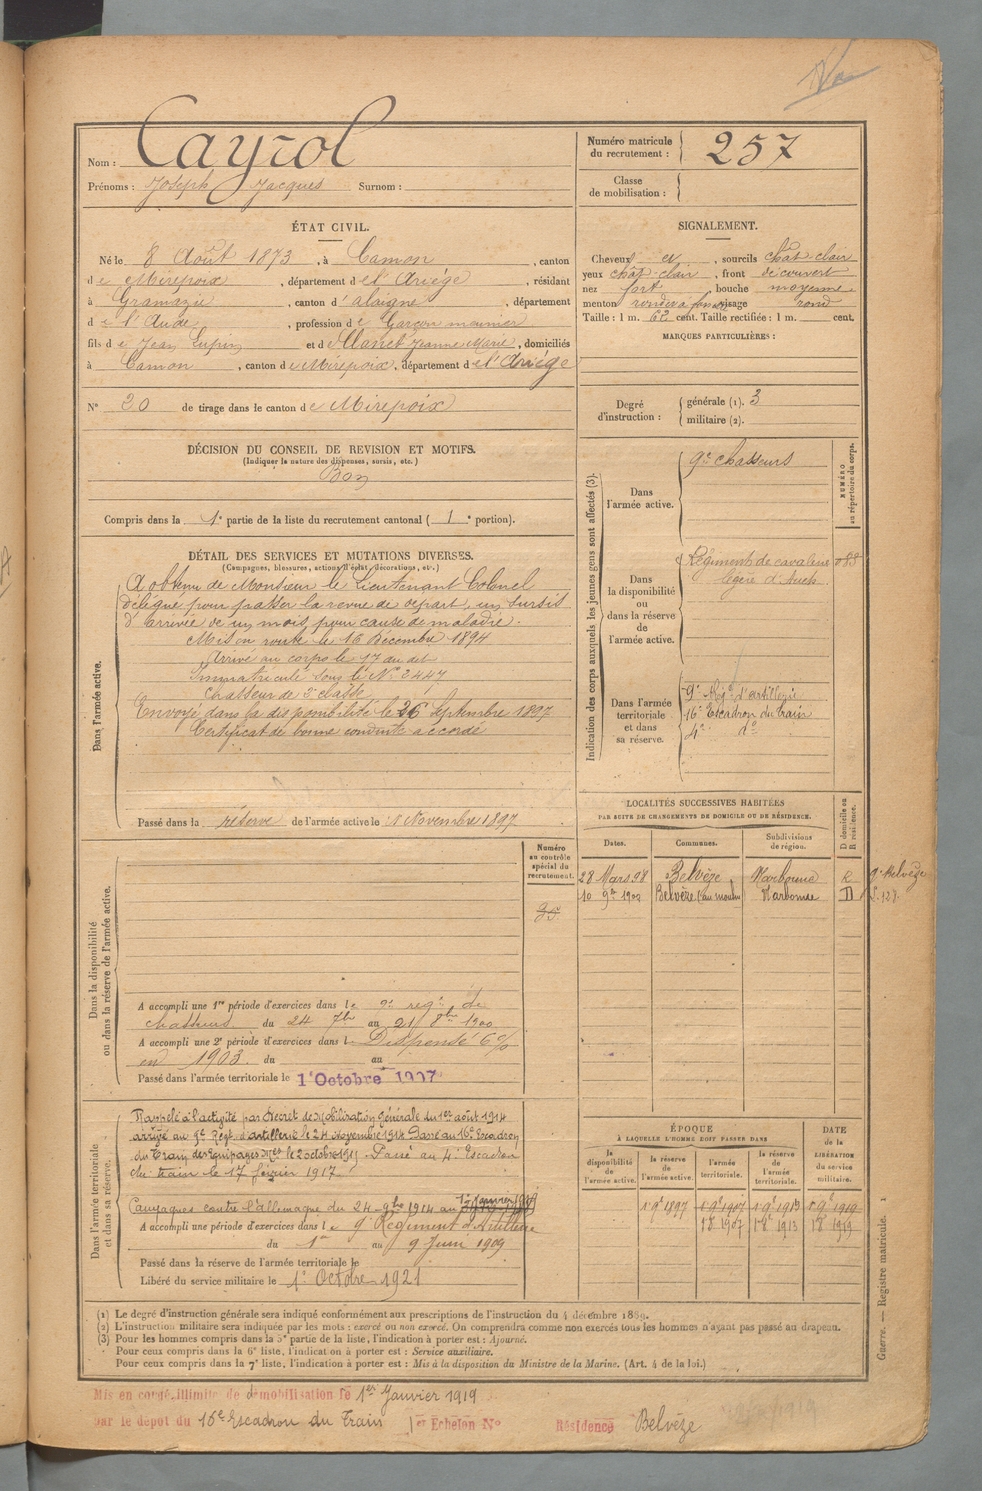 Nom : Cayrol
Prénoms : Joseph Jacques Surnom :
Numéro matricule du recrutement : 257
Classe de mobilisation :
ÉTAT CIVIL.
Né le 8 Août 1873, à Camon, canton
de Mirepoix, département de l'Ariège, résidant
à Gramazie, canton d'alaigne, département
de l'Aude, profession de Garçon meunier
fils de Jean Lupin et de Manet Jeanne Marie, domiciliés
à Camon, canton de Mirepoix, département de l'Ariège
N° 20 de tirage dans le canton de Mirepoix
SIGNALEMENT.
Cheveux et, sourcils chât-clair
yeux chât-clair, front découvert
nez fort bouche moyenne
menton rond visage rond
Taille : 1 m. 62 cent. Taille rectifiée : 1 m. cent.
MARQUES PARTICULIÈRES :
Degré d'instruction : générale (1). 3
militaire (2).
DÉCISION DU CONSEIL DE REVISION ET MOTIFS.
(Indiquer la nature des dispenses, sursis, etc.)
Bon
Compris dans la 1e partie de la liste du recrutement cantonal ( 1e portion).
DÉTAIL DES SERVICES ET MUTATIONS DIVERSES.
(Campagnes, blessures, actions d'éclat, décorations, etc.)
Dans l'armée active.
A obtenu de Monsieur le Lieutenant Colonel
délégué pour passer la revue de départ, un sursis
d'arrivée de un mois, pour cause de maladie.
Mis en route le 16 Décembre 1894
Arrivé au corps le 17 au dit
Immatriculé sous le N° 3447
Chasseur de 2e classe
Envoyé dans la disponibilité le 26 Septembre 1897
Certificat de bonne conduite accordé
Passé dans la réserve de l'armée active le 1r Novembre 1897
Indication des corps auxquels les jeunes gens sont affectés (3).
NUMÉRO au répertoire du corps.
Dans l'armée active.
9e chasseurs
Dans la disponibilité ou dans la réserve de l'armée active.
Régiment de cavalerie
légère d'Auch
Dans l'armée territoriale et dans sa réserve.
9e Régt d'artillerie
16e Escadron du train
4e do
LOCALITÉS SUCCESSIVES HABITÉES
PAR SUITE DE CHANGEMENTS DE DOMICILE OU DE RÉSIDENCE.
Dates. Communes. Subdivisions de région. D domicile ou R résidence.
28 Mars 98 Belvèze Narbonne R
10 9bre 1900 Belvèze (au moulin) Narbonne D
Dans la disponibilité ou dans la réserve de l'armée active.
Numéro au contrôle spécial du recrutement.
A accompli une 1re période d'exercices dans le 9e regt de
chasseurs du 24 7bre au 21 8bre 1900
A accompli une 2e période d'exercices dans l Dispensé 6%
en 1903 du au
Passé dans l'armée territoriale le 1er Octobre 1907
Dans l'armée territoriale et dans sa réserve.
Rappelé à l'activité par Décret de Mobilisation Générale du 1er août 1914
arrivé au 9e Régt d'artillerie le 24 novembre 1914 Passé au 16e Escadron
du Train des Equipages Mres le 2 octobre 1915 Passé au 4e Escadron
du train le 17 février 1917
Campagnes contre l'allemagne du 24 9bre 1914 au 1er Janvier 1919
A accompli une période d'exercices dans le 9e Régiment d'Artillerie
du 1er au 9 Juin 1909
Passé dans la réserve de l'armée territoriale le
Libéré du service militaire le 1er Octobre 1921
ÉPOQUE
À LAQUELLE L'HOMME DOIT PASSER DANS
la disponibilité de l'armée active. la réserve de l'armée active. l'armée territoriale. la réserve de l'armée territoriale.
DATE de la LIBÉRATION du service militaire.
1 9e 1897 1 9e 1907 1 9e 1913 1 9e 1919
1 8e 1907 1 8e 1913 1 8e 1919
(1) Le degré d'instruction générale sera indiqué conformément aux prescriptions de l'instruction du 4 décembre 1889.
(2) L'instruction militaire sera indiquée par les mots : exercé ou non exercé. On comprendra comme non exercés tous les hommes n'ayant pas passé au drapeau.
(3) Pour les hommes compris dans la 5e partie de la liste, l'indication à porter est : Ajourné.
Pour ceux compris dans la 6e liste, l'indication à porter est : Service auxiliaire.
Pour ceux compris dans la 7e liste, l'indication à porter est : Mis à la disposition du Ministre de la Marine. (Art. 4 de la loi.)
Guerre. — Registre matricule. 1
Mis en congé illimité de démobilisation le 1er Janvier 1919
par le dépôt du 16e Escadron du Train 1er Echelon N° Résidence Belvèze